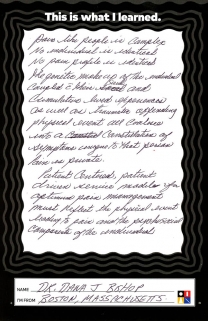 This is what I learned.
Pain like people is complex
No individual is identical
No pain profile is identical
The genetic makeup of the individual
Coupled & their social and
Cumulative lived experiences
as well as traumatic offending
physical event all coalesce
into a constellation of
symptoms unique to that person
Pain is private.
Patient Centered, patient
driven service models for
optimal pain management
must reflect the physical event
leading to pain and the psychosocial
components of the individual
NAME DR. DANA J BSHOP
I'M FROM BOSTON, MASSACHUSETTS